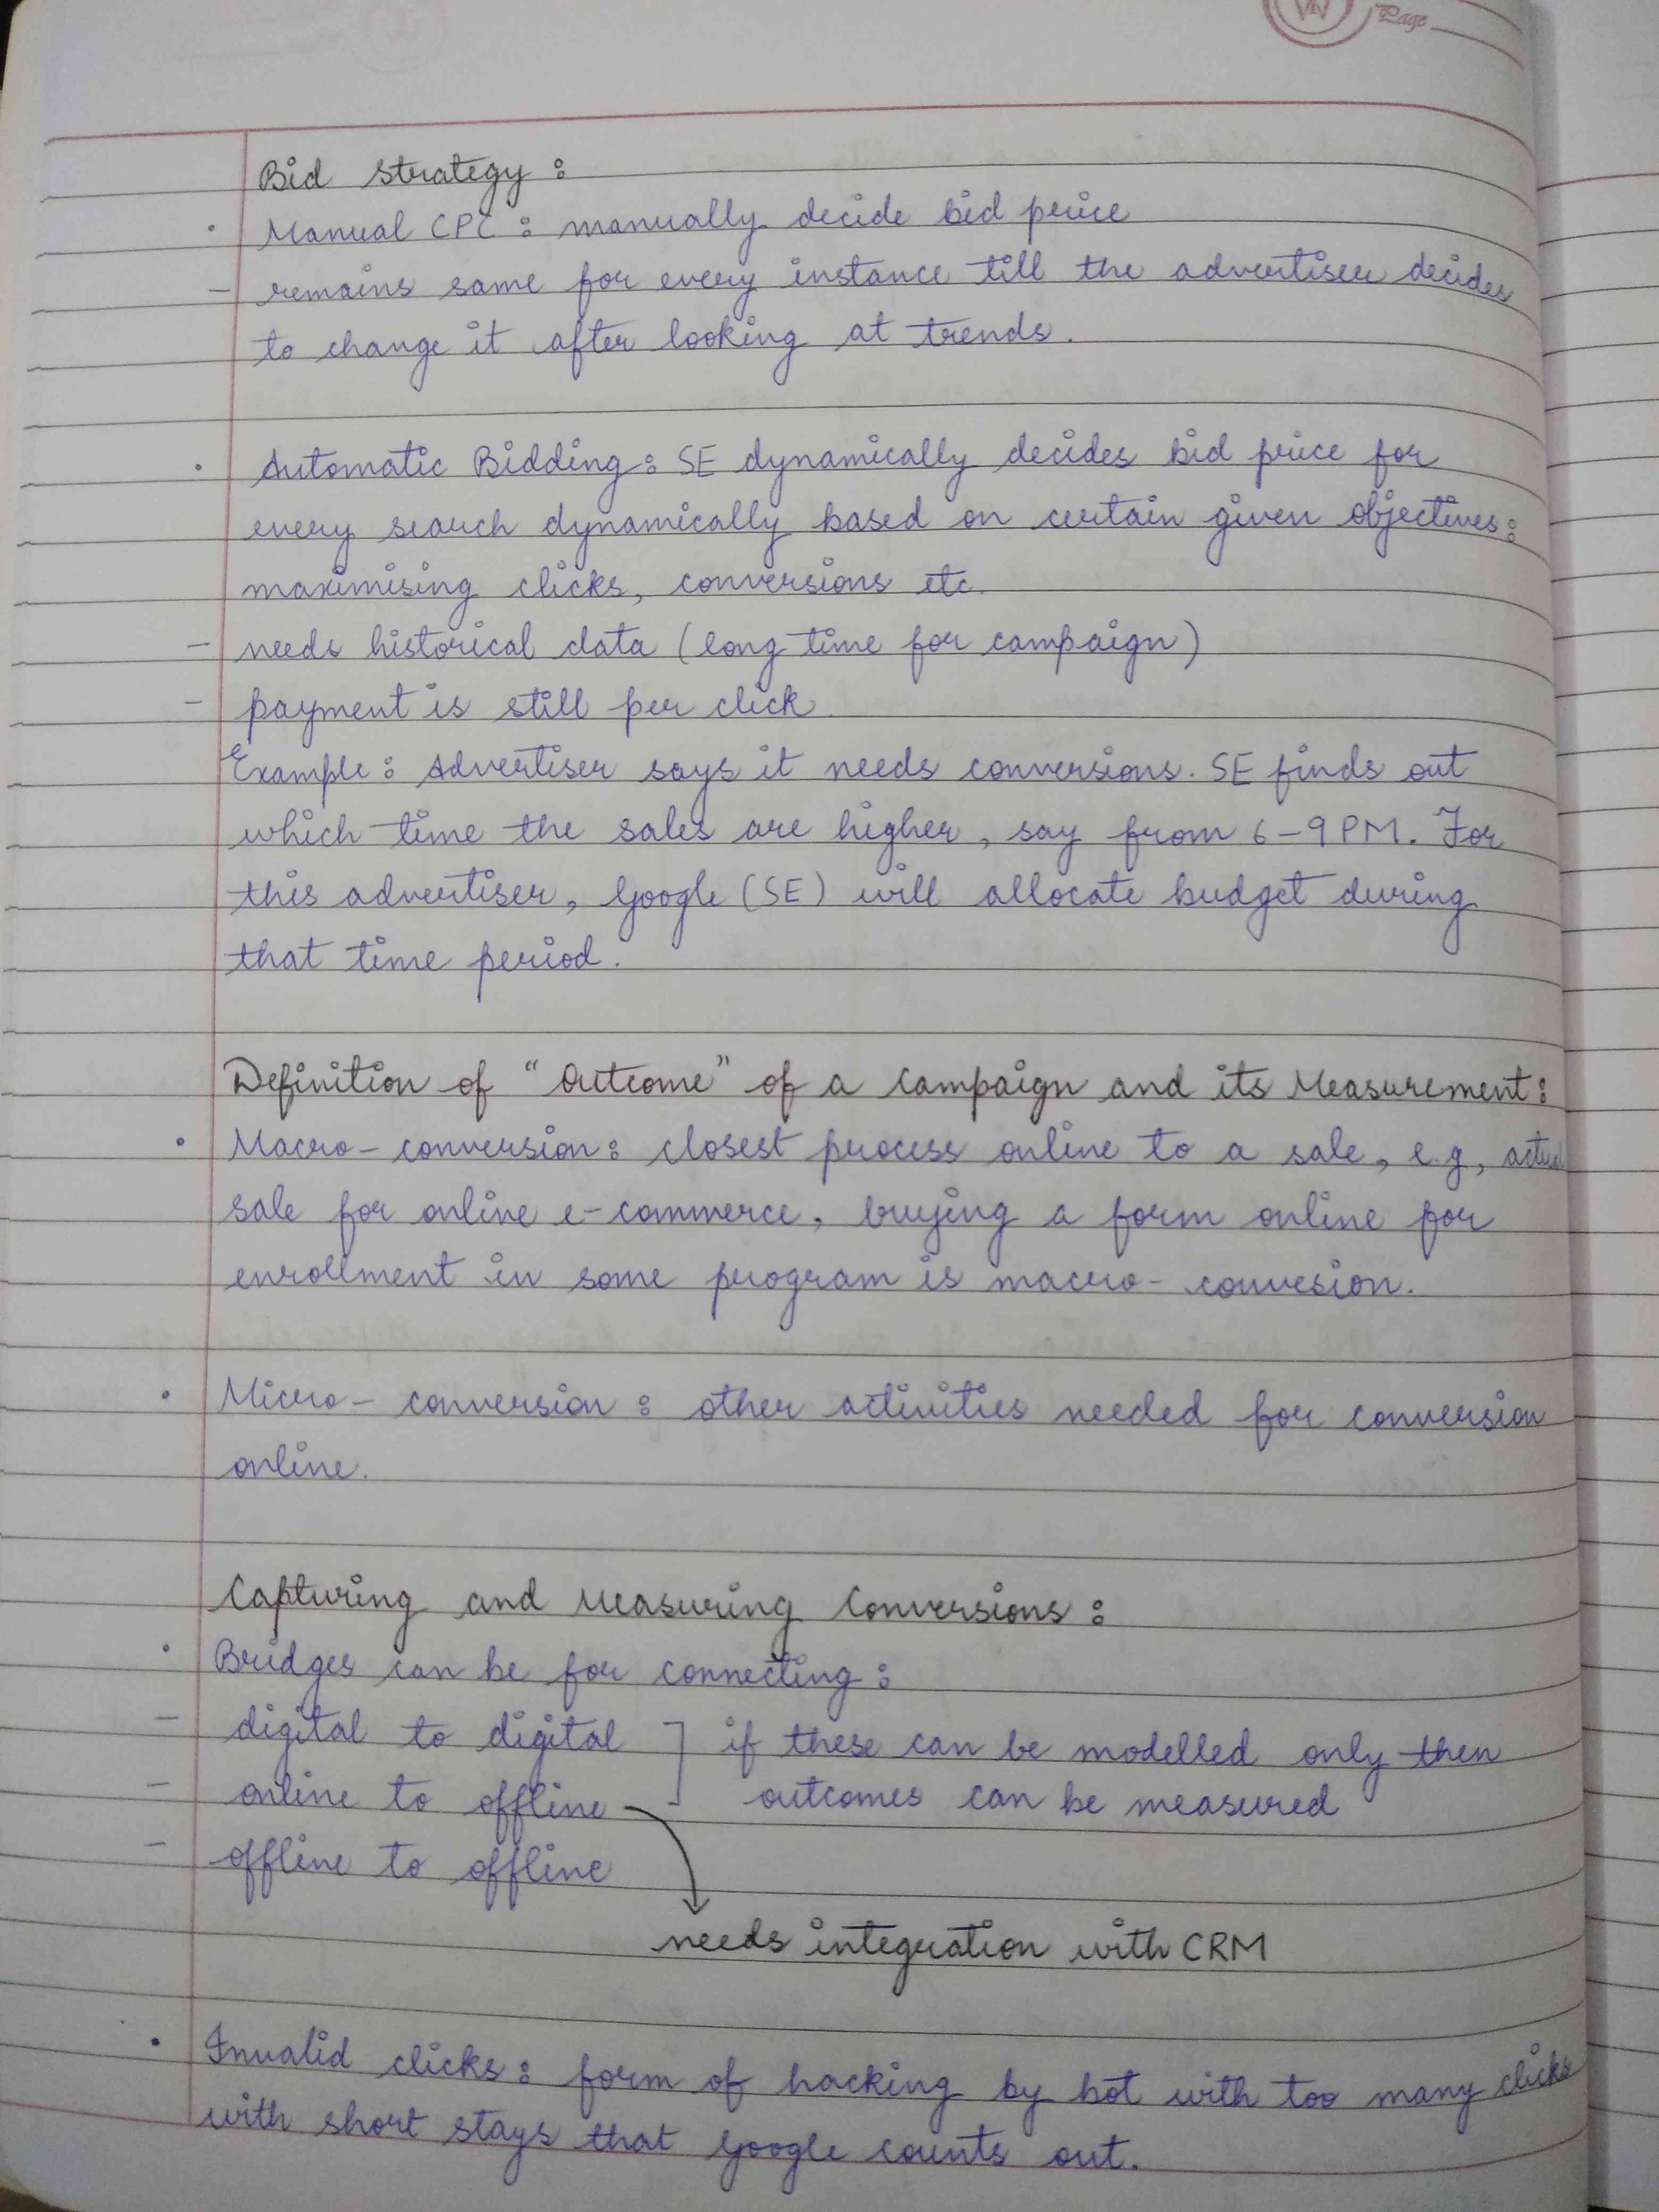 Page
Bid strategy :
• Manual CPC : manually decide bid price
- remains same for every instance till the advertiser decides
to change it after looking at trends.
• Automatic Bidding : SE dynamically decides bid price for
every search dynamically based on certain given objectives :
maximising clicks, conversions etc.
- needs historical data (long time for campaign)
- payment is still per click.
Example : Advertiser says it needs conversions. SE finds out
which time the sales are higher, say from 6-9 PM. For
this advertiser, Google (SE) will allocate budget during
that time period.
Definition of "Outcome" of a Campaign and its Measurement :
• Macro-conversion : closest process online to a sale, e.g, actual
sale for online e-commerce, buying a form online for
enrollment in some program is macro-convesion.
• Micro-conversion : other activities needed for conversion
online.
Capturing and Measuring Conversions :
• Bridges can be for connecting :
- digital to digital ] if these can be modelled only then
- online to offline ] outcomes can be measured
- offline to offline
needs integration with CRM
• Invalid clicks : form of hacking by bot with too many clicks
with short stays that Google counts out.